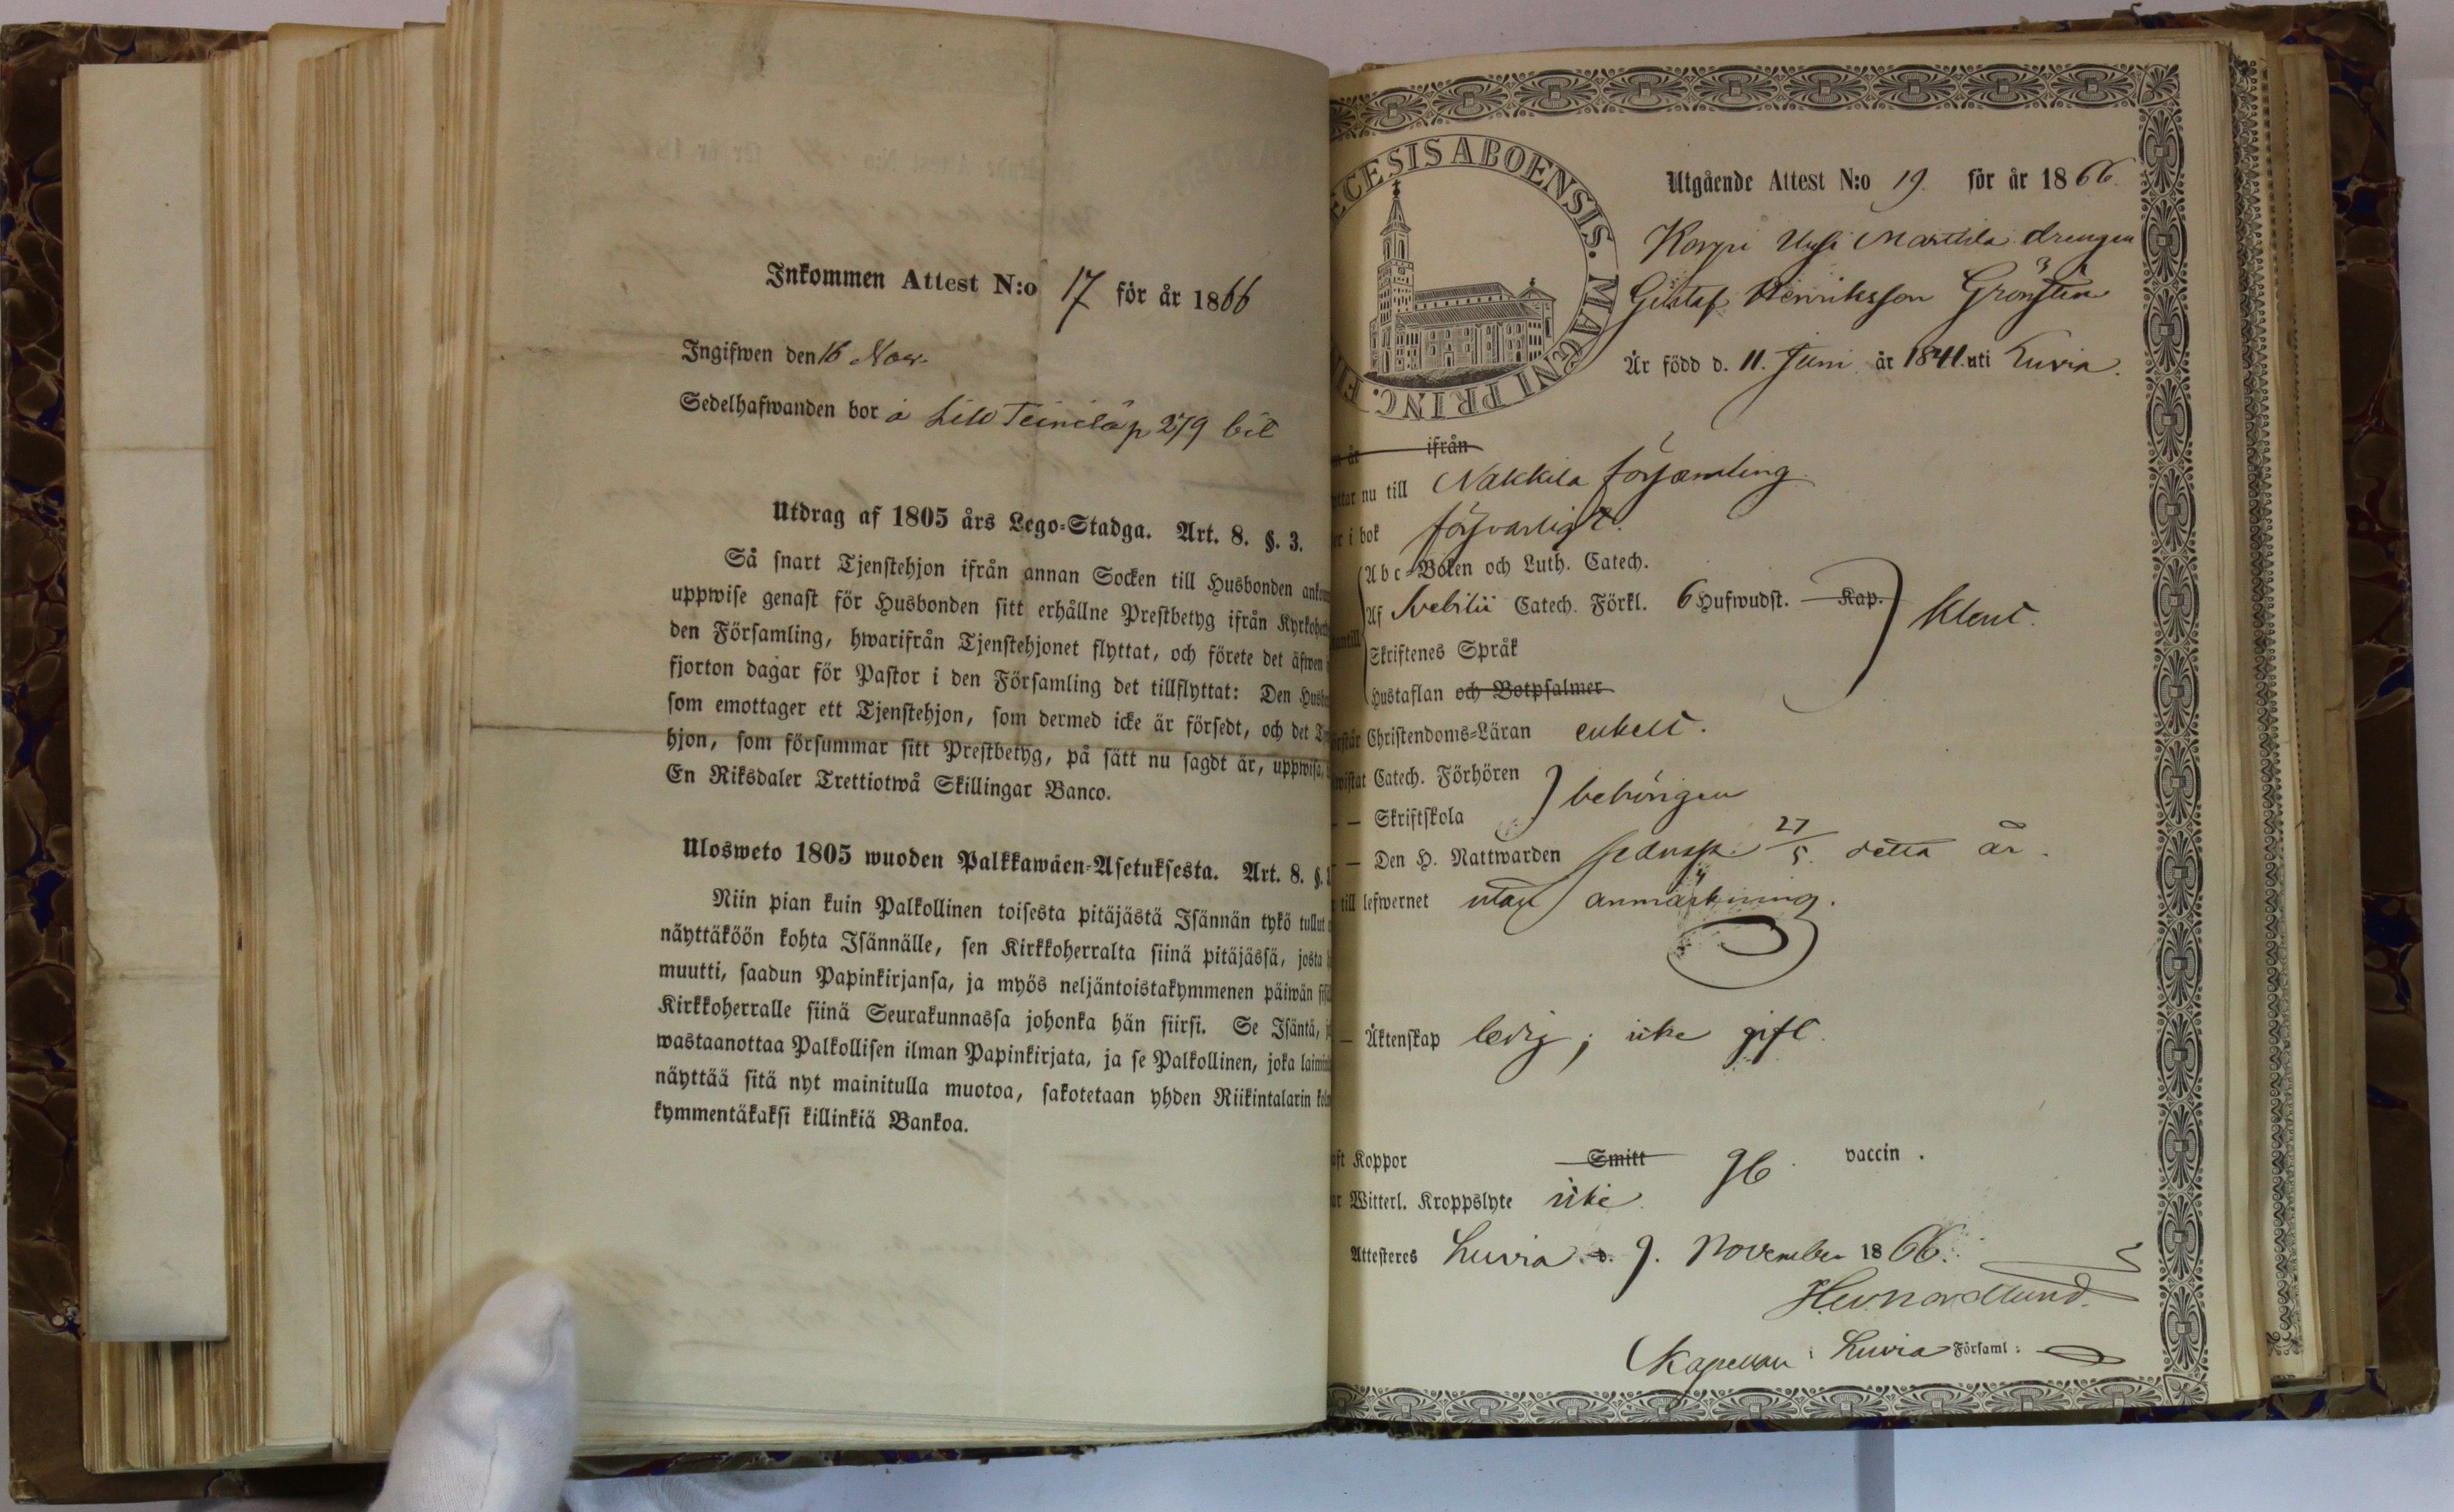 Inkommen Attest N:o 17 för år 1866
Ingifwen den 16 Nov.
Sedelhafwanden bor å Lill Teinilä p 279 bit
Utdrag af 1805 års Lego-Stadga. Art. 8. §. 3.
Så snart Tjenstehjon ifrån annan Socken till Husbonden
uppwise genast för Husbonden sitt erhållne Prestbetyg ifrån
den Församling, hwarifrån Tjenstehjonet flyttat, och förete det äfwen
fjorton dagar för Pastor i den Församling det tillflyttat: Den
som emottager ett Tjenstehjon, som dermed icke är försedt, och det
hjon, som försummar sitt Prestbetyg, på sätt nu sagdt är, uppwisa,
En Riksdaler Trettiotwå Skillingar Banco.
Ulosweto 1805 wuoden Palkkawäen-Asetuksesta. Art. 8. §.
Niin pian kuin Palkollinen toisesta pitäjästä Isännän tykö tullut
näyttäköön kohta Isännälle, sen Kirkkoherralta siinä pitäjässä, josta
muutti, saadun Papinkirjansa, ja myös neljäntoistakymmenen päiwän
Kirkkoherralle siinä Seurakunnassa johonka hän siirsi. Se Isäntä,
wastaanottaa Palkollisen ilman Papinkirjata, ja se Palkollinen, joka
näyttää sitä nyt mainitulla muotoa, sakotetaan yhden Riikintalarin
kymmentäkaksi killinkiä Bankoa.
ECESIS ABOENSIS. MAGNI PRINC. FI
Utgående Attest N:o 19. för år 1866.
Korpi Uusi Marttila drengen
Gustaf Henriksson Grönsten
Är född d. 11. Juni år 1841. uti Luvia.
är ifrån
nu till Nakkila församling
i bok försvarligt.
Abc-Boken och Luth. Catech.
Af Svebilii Catech. Förkl. 6 Hufwudst. Kap. klent.
Skriftenes Språk
Hustaflan och Botpsalmer
Christendoms-Läran enkelt.
Catech. Förhören
— Skriftskola behörigen
— Den H. Nattwarden sednast 27/5 detta år.
till lefwernet utan anmärkning.
— Äktenskap ledig; icke gift.
Koppor Smitt gb. vaccin.
Witterl. Kroppslyte icke.
Attesteres Luvia d. 9. November 1866.
Nordlund.
Kapellan i Luvia Församl: